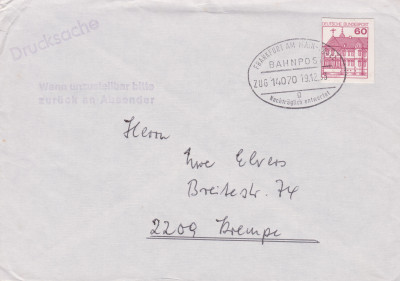 Drucksache
Wenn unzustellbar bitte
zurück an Absender
DEUTSCHE BUNDESPOST
60
FRANKFURT AM MAIN
BAHNPOST
ZUG 14070 19.12.
g
Nachträglich entwertet
Herrn
Uwe Elvers
Breitestr. 74
2209 Krempe